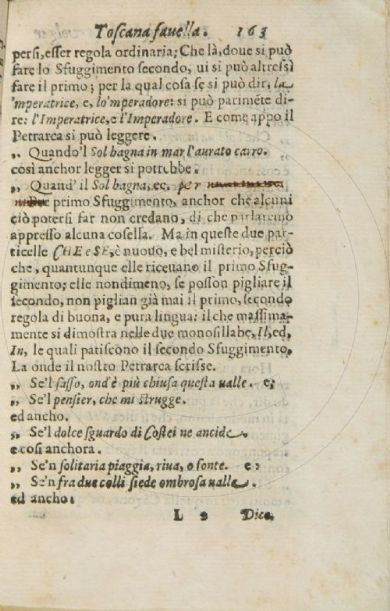 Toscana fauella. 163
persi, esser regola ordinaria; Che là, doue si può
fare lo Sfuggimento secondo, ui si può altressì
fare il primo; per la qual cosa se si può dir, la
'mperatrice, e, lo'mperadore: si può pariméte di-
re: l'Imperatrice, e l'Imperadore. E come appo il
Petrarca si può leggere.
„ Quando'l Sol bagna in mar l'aurato carro.
così anchor legger si potrebbe.
„ Quand'il Sol bagna, ec. per
primo Sfuggimento, anchor che alcuni
ciò potersi far non credano, di che parlaremo
appresso alcuna cosella. Ma in queste due par-
ticelle CHE e SE, è nuouo, e bel misterio, perciò
che, quantunque elle riceuano il primo Sfug-
gimento; elle nondimeno, se posson pigliare il
secondo, non piglian già mai il primo, secondo
regola di buona, e pura lingua: il che massima-
mente si dimostra nelle due monosillabe, Il, ed,
In, le quali patiscono il secondo Sfuggimento.
La onde il nostro Petrarca scrisse.
„ Se'l sasso, ond'è più chiusa questa ualle. e;
„ Se'l pensier, che mi strugge.
ed ancho.
„ Se'l dolce sguardo di Costei ne ancide
e così anchora.
„ Se'n solitaria piaggia, riua, o fonte. e:
„ Se'n fra due colli siede ombrosa ualle
ed ancho:
L 2 Dice,